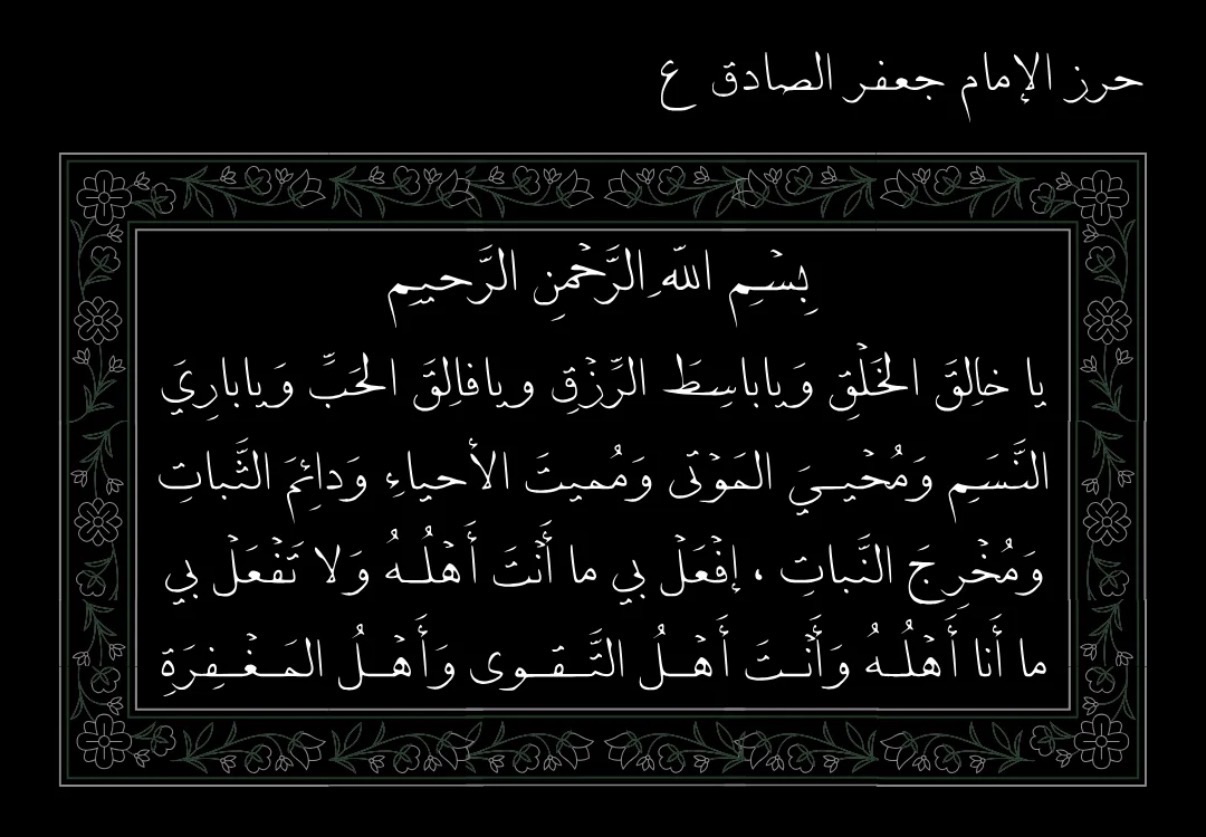 حرز الإمام جعفر الصادق ع
بِسْمِ اللّهِ الرَّحْمنِ الرَّحيمِ
يا خالِقَ الخَلْقِ وَياباسِطَ الرِّزْقِ ويافالِقَ الحَبِّ وَيابارِيَ
النَّسَمِ وَمُحْيـيَ المَوْتى وَمُميتَ الأحياءِ وَدائِمَ الثَّباتِ
وَمُخْرِجَ النَّباتِ ، إفْعَلْ بي ما أَنْتَ أَهْلُـهُ وَلا تَفْعَلْ بي
ما أَنا أَهْلُـهُ وَأَنْـتَ أَهْـلُ التَّـقـوى وَأَهْـلُ المَـغْـفِـرَةِ